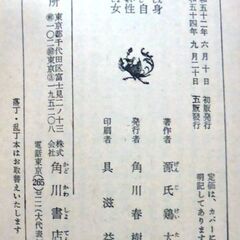 定価は、カバーに
明記してあります。
五十二年 六月十日 初版発行
五十四年 九月二十日 五版発行
著作者 源氏鶏太
発行者 角川春樹
印刷者 具滋益
女性自身
所
東京都千代田区富士見二ノ十三
〒一〇二 東京③一九五二〇八
株式会社 角川書店
電話東京(265)
落丁・乱丁本はお取替えいたします